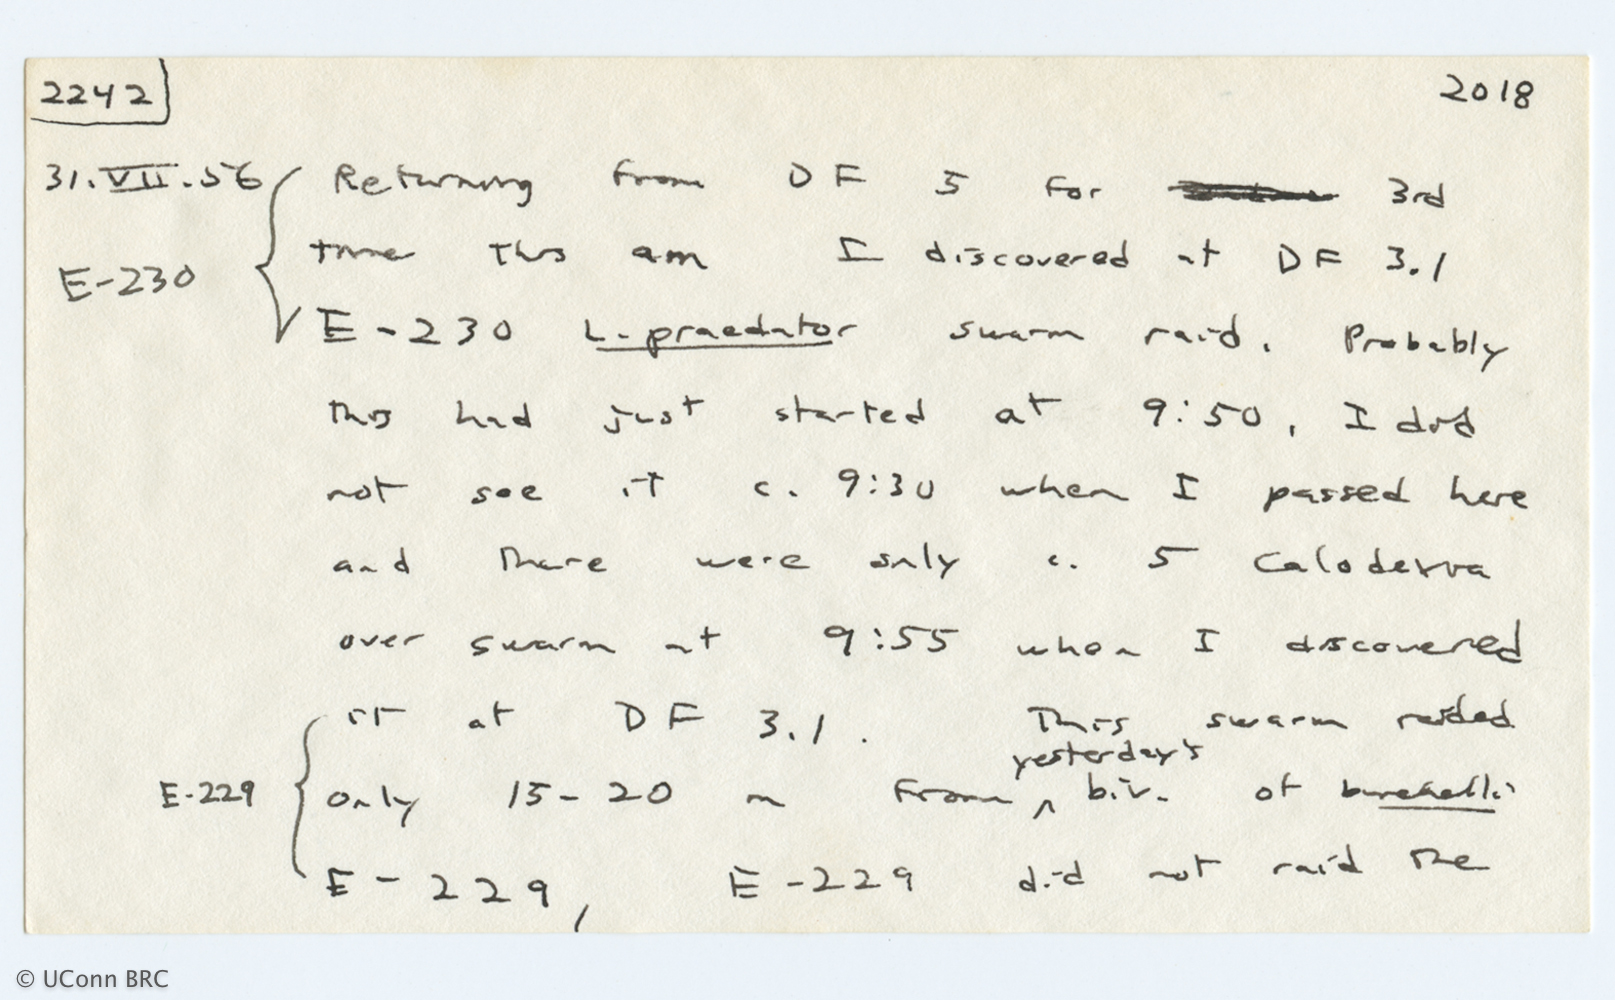 2242
2018
31.VII.56 Returning from DF 5 for 3rd
time this am I discovered at DF 3.1
E-230
E-230 L. praedator swarm raid. Probably
this had just started at 9:50, I did
not see it c. 9:30 when I passed here
and there were only c. 5 Caloderxa
over swarm at 9:55 when I discovered
it at DF 3.1. This swarm raided
yesterday's
E-229 only 15-20 m from ^ biv. of burchelli
E-229, E-229 did not raid the
© UConn BRC